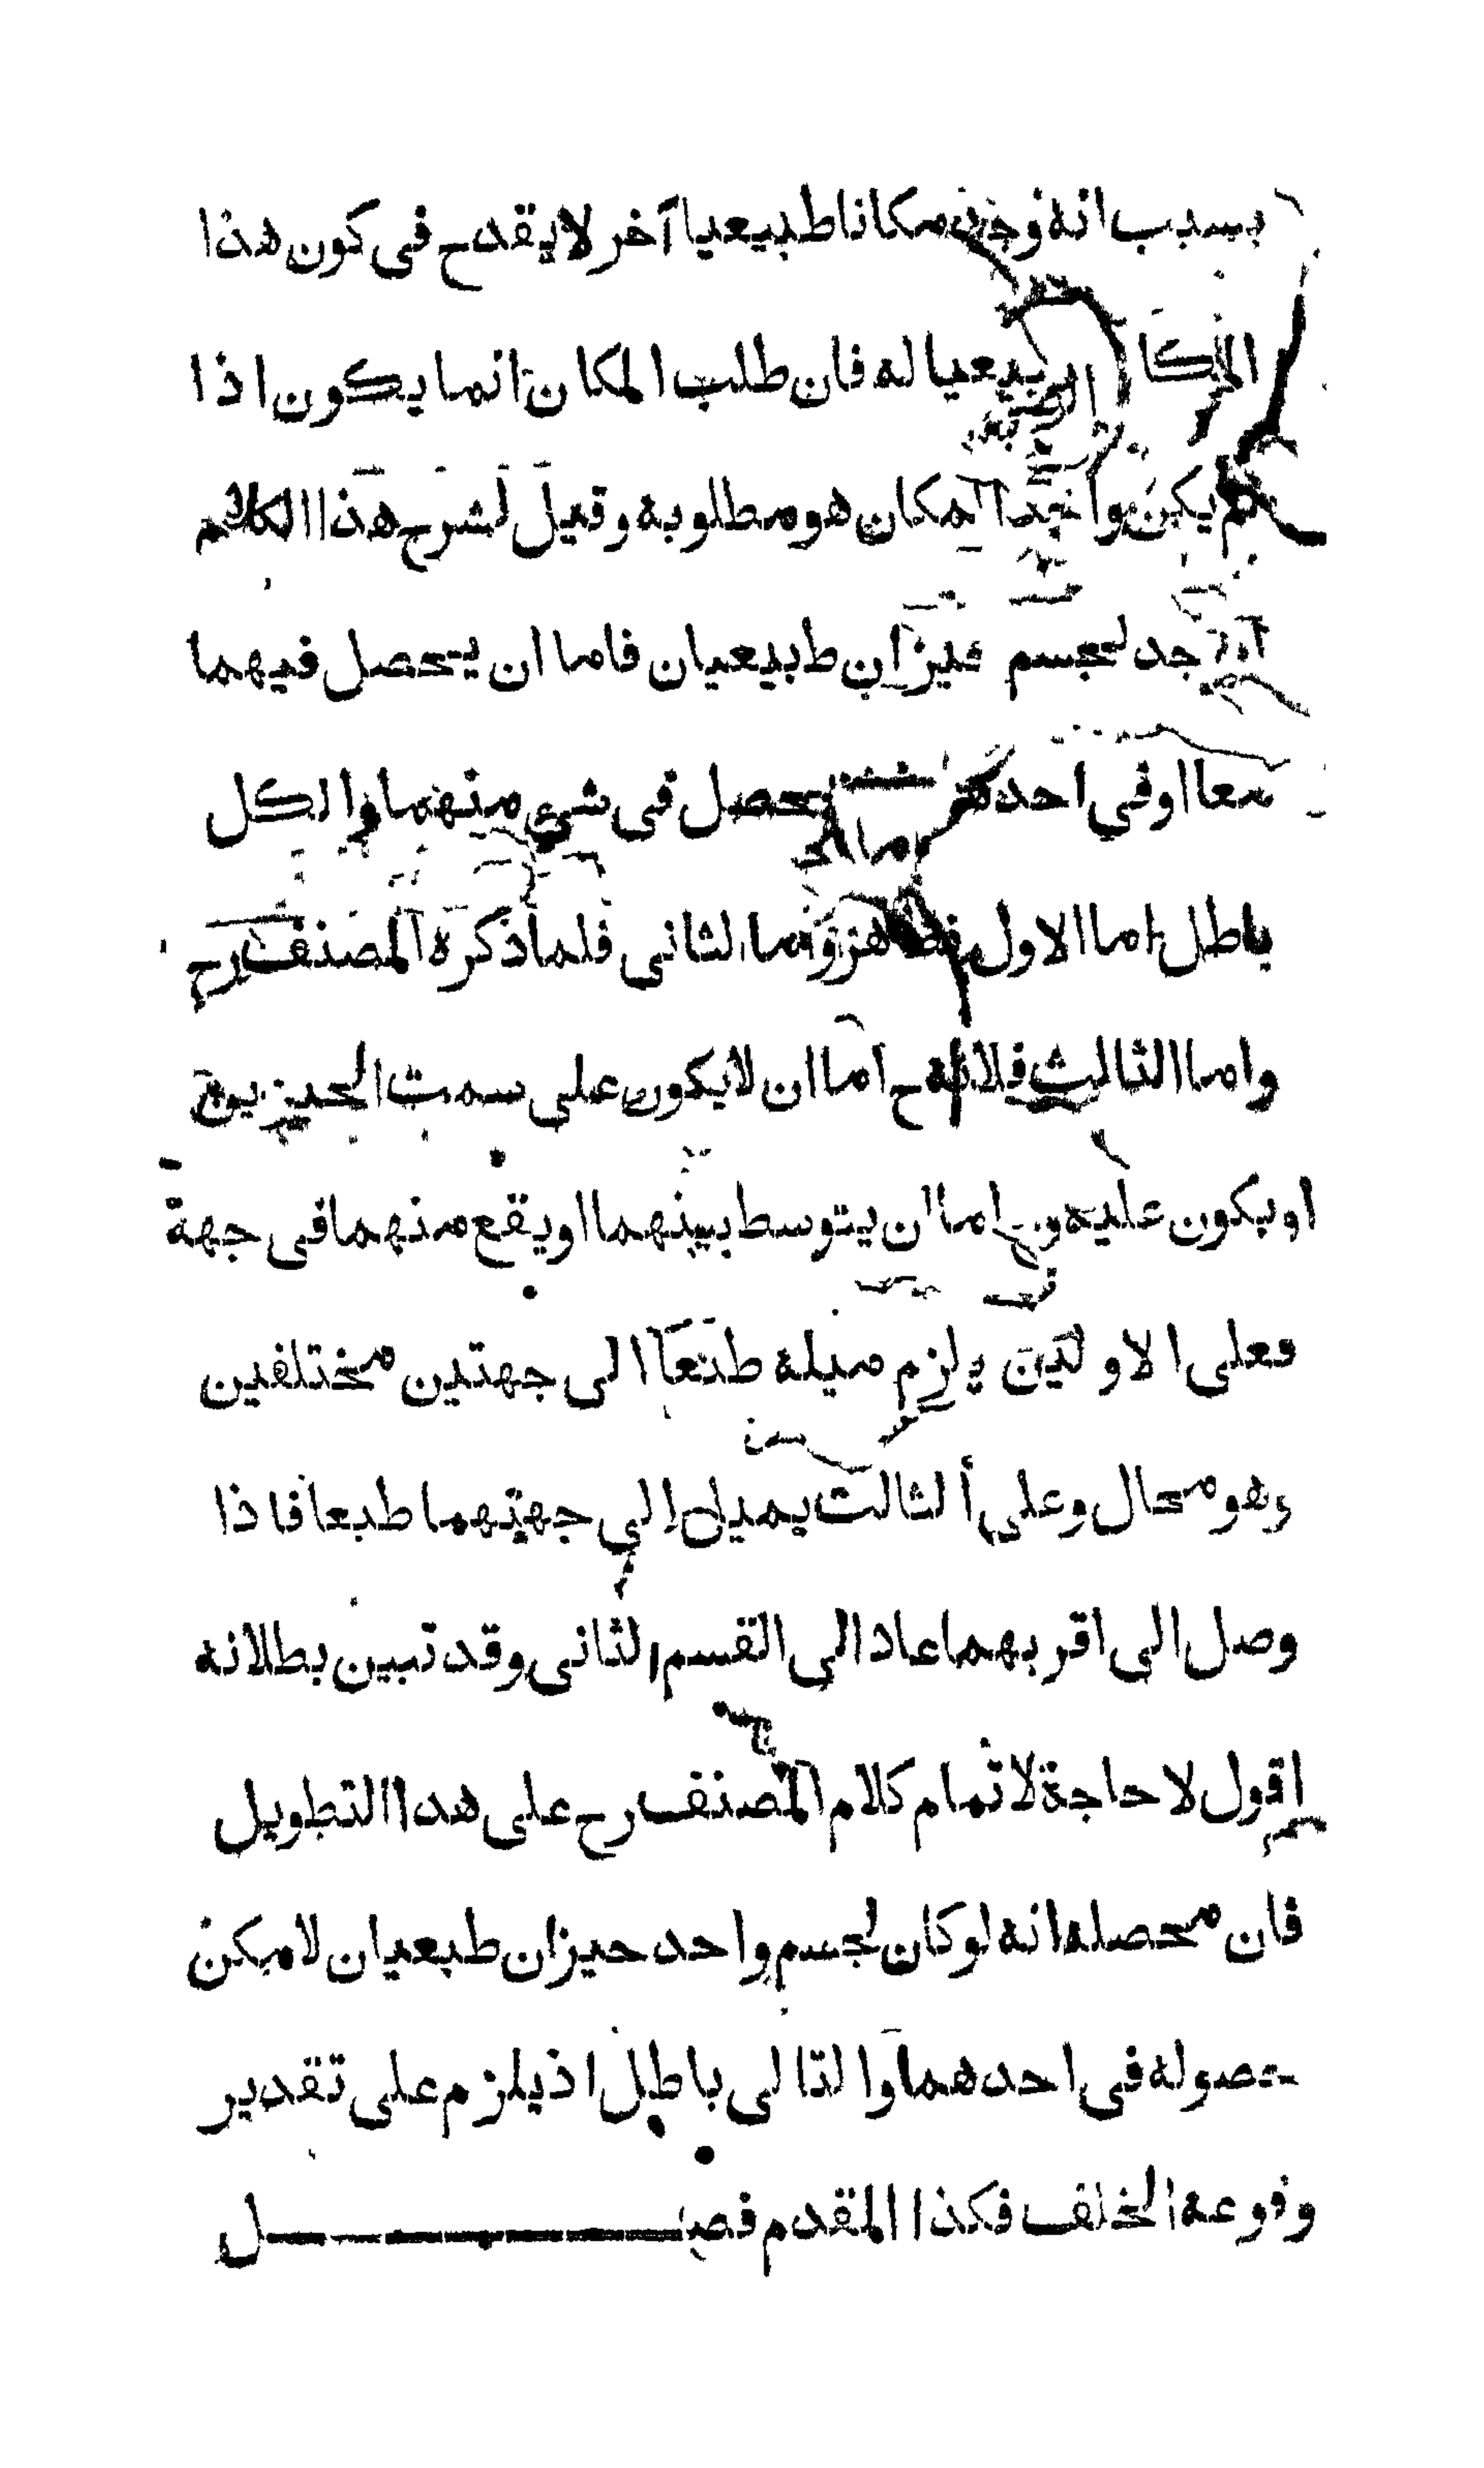 بسبب انه وجد مكانا طبيعيا آخر لا يقدح فى كون هذا
المكان طبيعيا له فان طلب المكان انما يكون اذا
لم يكن واجدا لمكان هو مطلوبه وقيل لشرح هذا الكلام
لجسم حيزان طبيعيان فاما ان يحصل فيهما
معا او في احدهما يحصل فى شىء منهما والكل
باطل اما الاول فظاهر واما الثانى فلما ذكره المصنف رح
واما الثالث فلانه ح اما ان لا يكون على سمت الحيزين
او يكون عليه و ح اما ان يتوسط بينهما او يقع منهما فى جهة
فعلى الاولين يلزم ميله طبعا الى جهتين مختلفين
وهو محال وعلى الثالث يميل الى جهتهما طبعا فاذا
وصل الى اقربهما عاد الى القسم الثانى وقد تبين بطلانه
اقول لا حاجة لاتمام كلام المصنف رح على هدا التطويل
فان محصله انه لو كان لجسم واحد حيزان طبعيان لامكن
حصوله فى احدهما والتالى باطل اذ يلزم على تقدير
وقوعه الخلف فكذا المقدم فصل